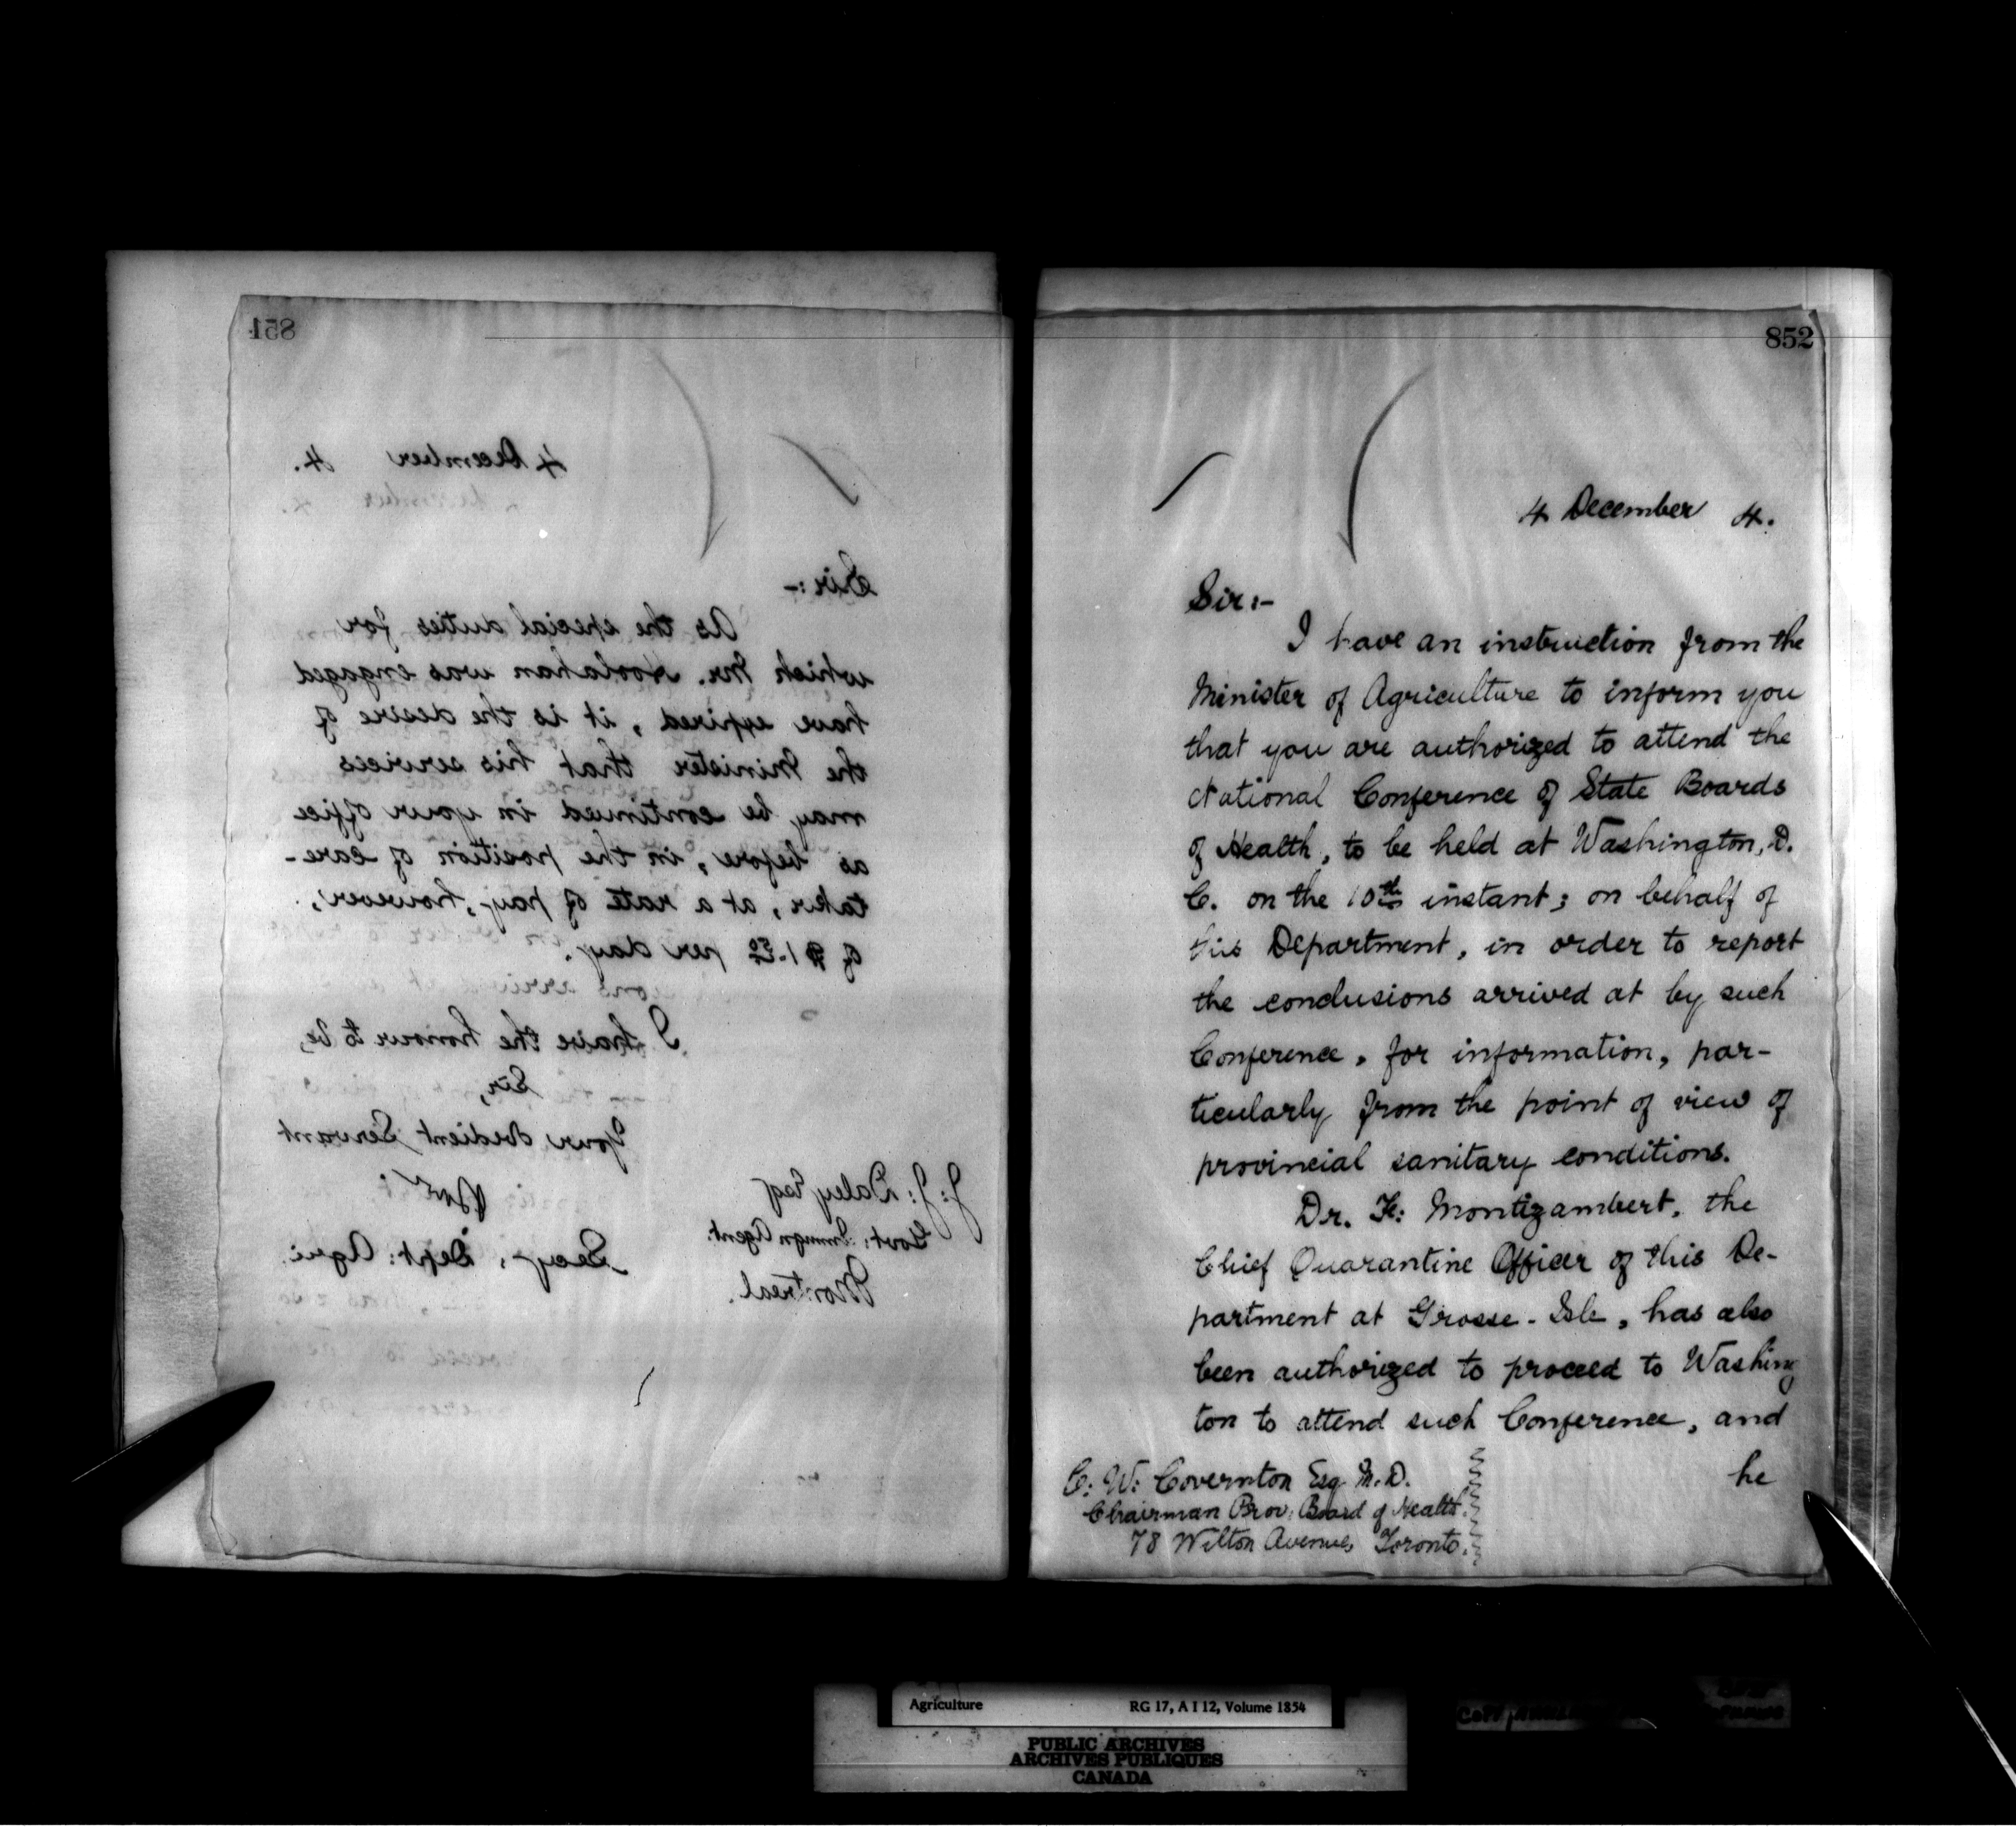 851
4 December 4.
Sir:-
As the special duties for
which Mr. Hoolahan was engaged
have expired, it is the desire of
the Minister that his services
may be continued in your office
as before, in the position of care-
taker, at a rate of pay, however,
of $1.50 per day.
I have the honour to be,
Sir,
Your obedient Servant
Secy, Dept: Agri.
J: J: Daley Esq
Govt: Immgn Agent.
Montreal.
852
4 December 4.
Sir:-
I have an instruction from the
Minister of Agriculture to inform you
that you are authorized to attend the
National Conference of State Boards
of Health, to be held at Washington, D.
C. on the 10th instant; on behalf of
this Department, in order to report
the conclusions arrived at by such
Conference, for information, par-
ticularly from the point of view of
provincial sanitary conditions.
Dr. F: Montizambert, the
Chief Quarantine Officer of this De-
partment at Grosse-Isle, has also
been authorized to proceed to Washing
ton to attend such Conference, and
he
C: W: Covernton Esq M.D.
Chairman Prov: Board of Health.
78 Wilton Avenue, Toronto.
Agriculture RG 17, A I 12, Volume 1854
PUBLIC ARCHIVES
ARCHIVES PUBLIQUES
CANADA